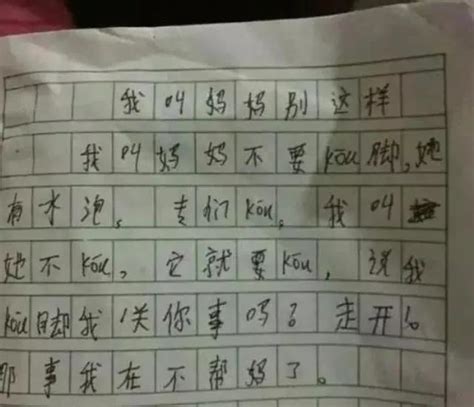 我叫妈妈别这样
我叫妈妈不要kōu脚,她
有水泡，专们kōu，我叫
她不kōu，它就要kōu，说我
kōu脚我1关你事吗？走开！。
那事我在不帮妈了。